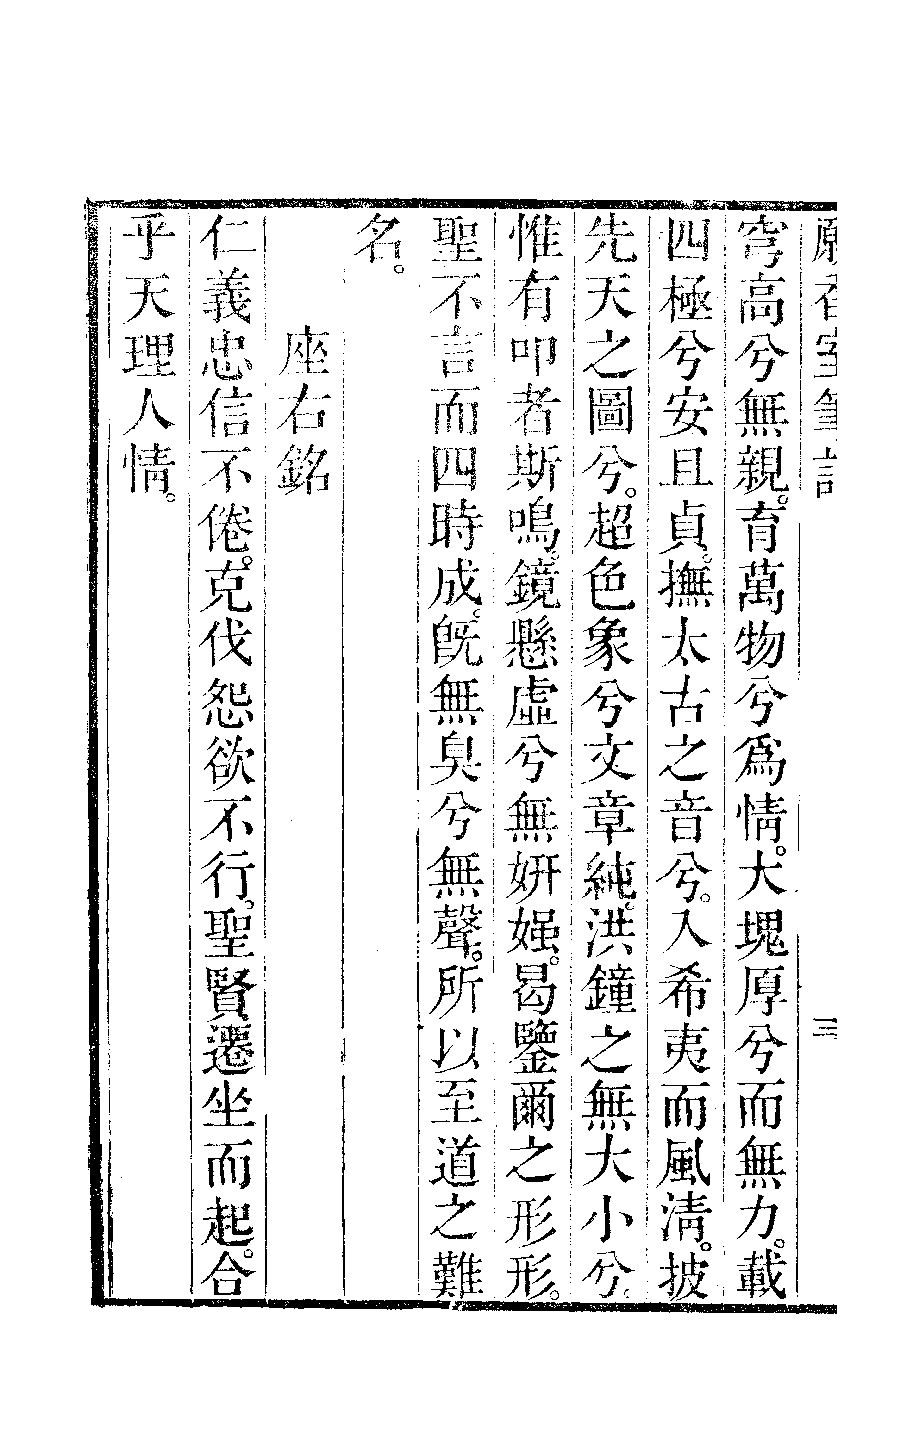 願香室筆記 三
穹高兮無親。育萬物兮爲情。大塊厚兮而無力。載
四極兮安且貞。撫太古之音兮。入希夷而風淸。披
先天之圖兮。超色象兮文章純。洪鐘之無大小兮。
惟有叩者斯鳴。鏡懸虛兮無妍媸。曷鑒爾之形形。
聖不言而四時成。旣無臭兮無聲。所以至道之難
名。
座右銘
仁義忠信不倦。克伐怨欲不行。聖賢遷坐而起。合
乎天理人情。